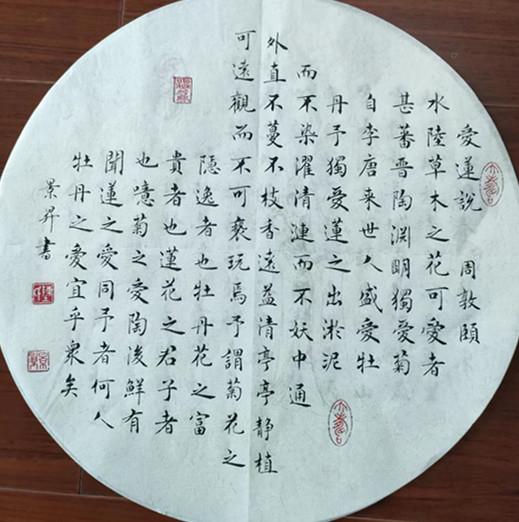 愛蓮説 周敦頤
水陸草木之花可愛者
甚蕃晋陶渊明獨愛菊
自李唐来世人盛愛牡
丹予獨愛蓮之出淤泥
而不染濯清漣而不妖中通
外直不蔓不枝香遠益清亭亭静植
可遠觀而不可褻玩焉予謂菊花之
隐逸者也牡丹花之富
貴者也蓮花之君子者
也噫菊之愛陶後鮮有
聞蓮之愛同予者何人
牡丹之愛宜乎衆矣
景昇書